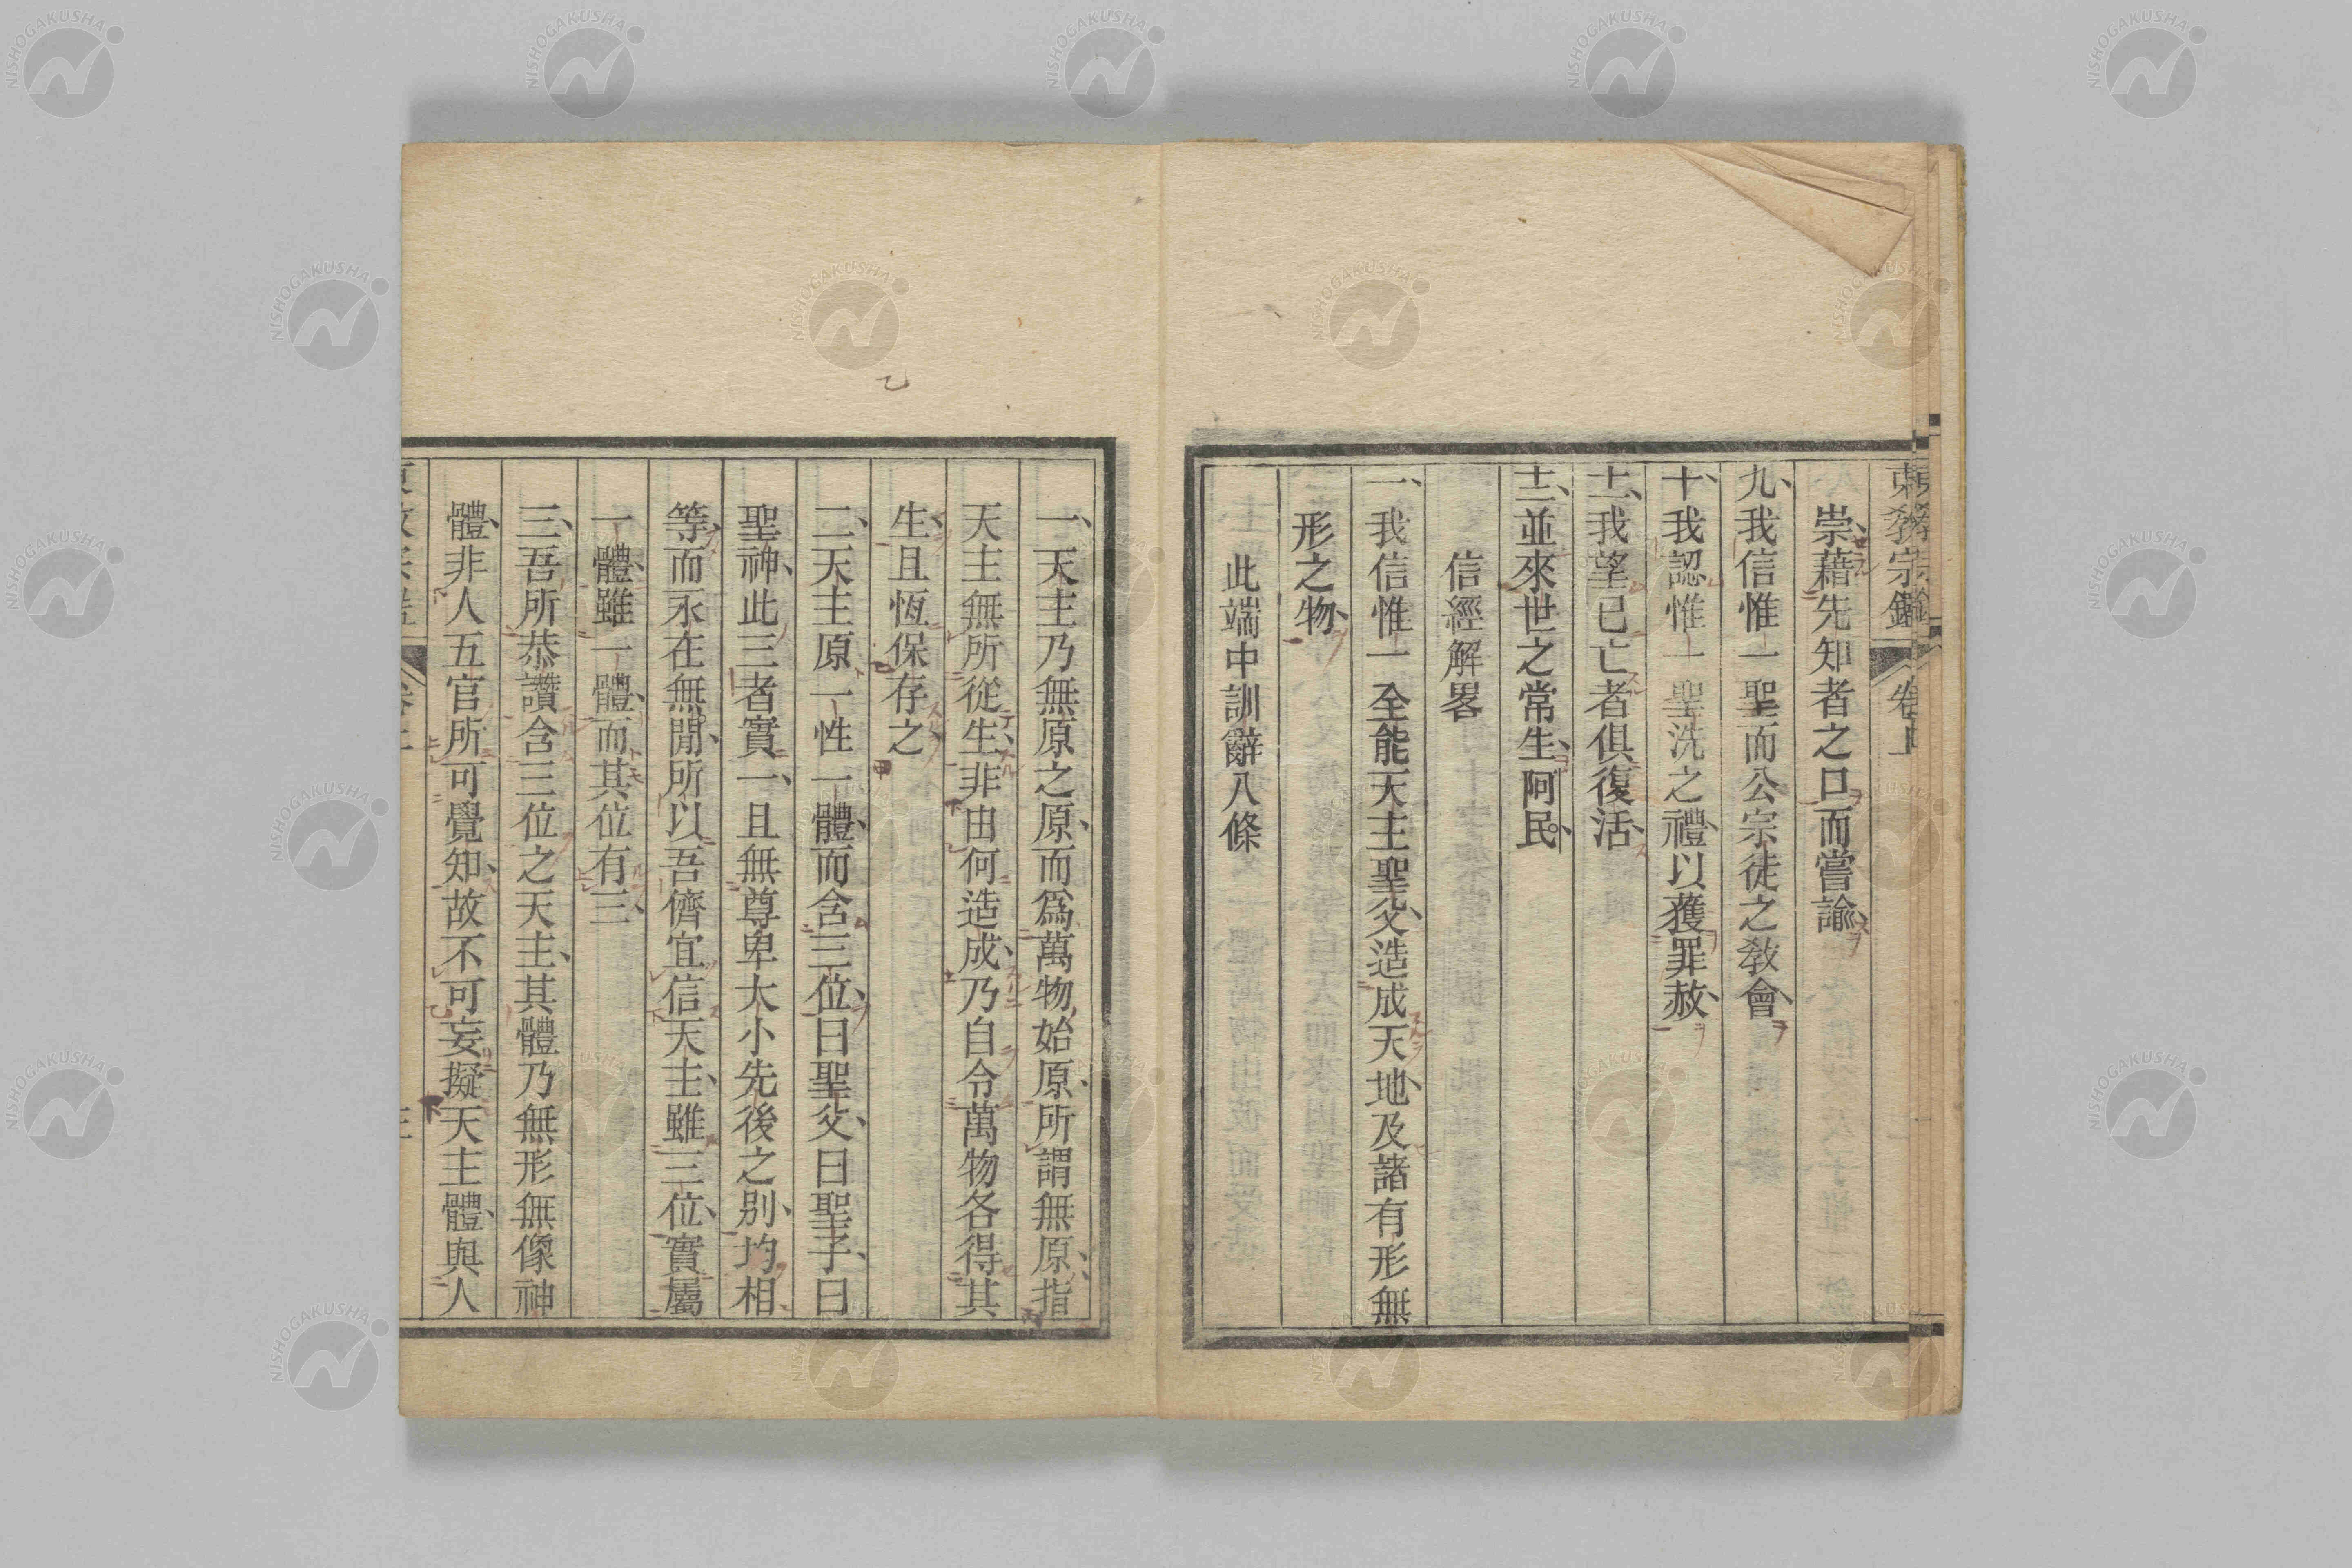 東教宗鑑 卷上
崇藉先知者之口而嘗諭
九、我信惟一聖而公宗徒之敎會、
十、我認惟一聖洗之禮、以獲罪赦、
十一、我望已亡者俱復活、
十二、並來世之常生、阿民、
信經解畧
一、我信惟一全能天主聖父、造成天地、及諸有形無
形之物、
此端中訓辭八條
一、天主乃無原之原、而爲萬物始原、所謂無原、指
天主無所從生、非由何造成、乃自令萬物各得其
生、且恆保存之、
二、天主原一性一體、而含三位、曰聖父、曰聖子、曰
聖神、此三者實一、且無尊卑大小先後之別、均相
等、而永在無閒、所以吾儕宜信天主、雖三位、實屬
一體、雖一體、而其位有三、
三、吾所恭讚含三位之天主、其體乃無形無像神
體、非人五官所可覺知、故不可妄擬天主體、與人
乙
NISHOGAKUSHA